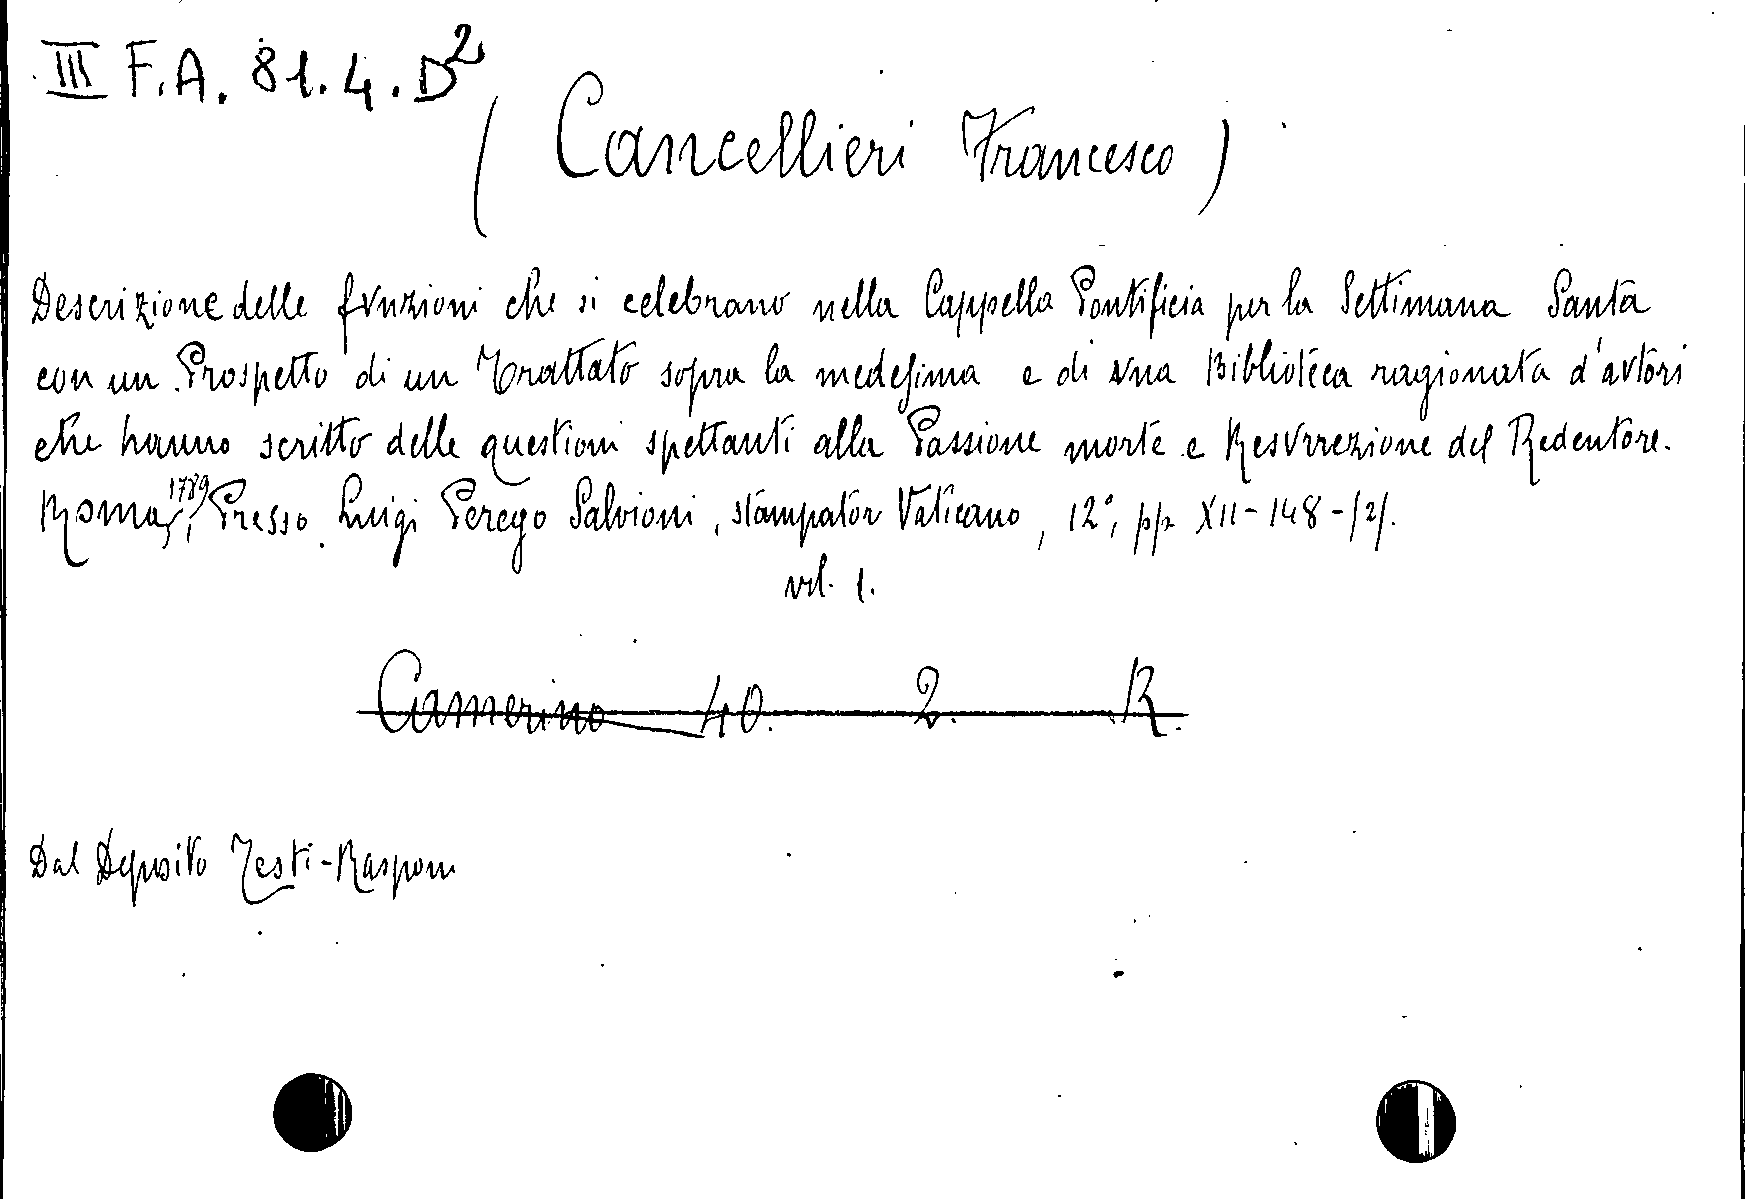 III F.A. 81.4.D²
(Cancellieri Francesco)
Descrizione delle funzioni che si celebrano nella Cappella Pontificia per la Settimana Santa
con un Prospetto di un Trattato sopra la medesima e di una Biblioteca ragionata d'autori
che hanno scritto delle questioni spettanti alla Passione morte e Resurrezione del Redentore.
Roma, 1789, Presso Luigi Perego Salvioni, stampator Vaticano, 12°, pp. XII-148-(2).
vol. 1.
Camerino 40. 2. R.
Dal Deposito Testi-Rasponi